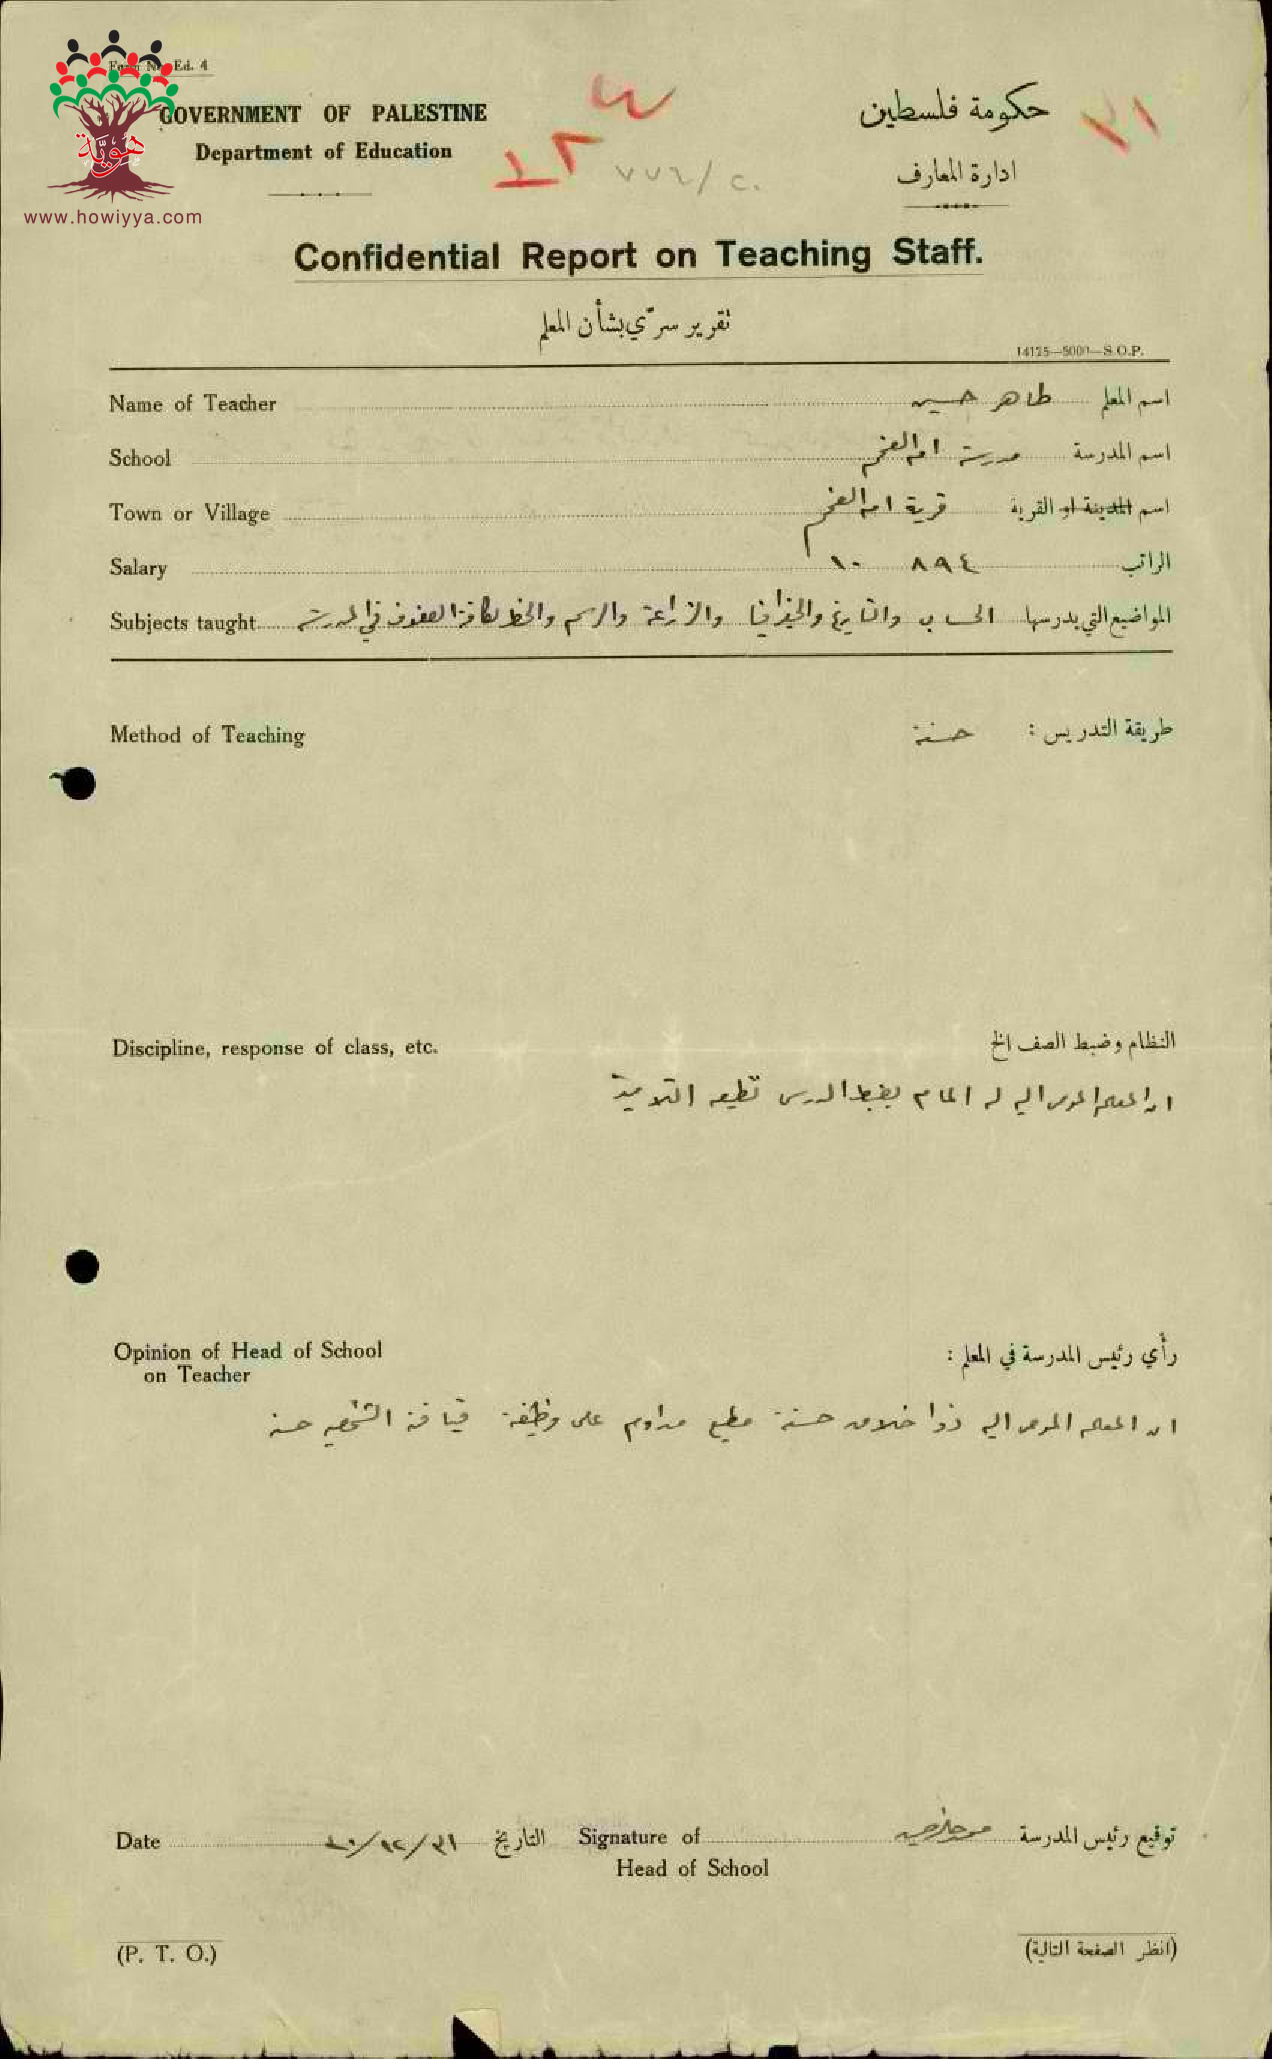 Form No. Ed. 4
هوية
www.howiyya.com
GOVERNMENT OF PALESTINE
Department of Education
حكومة فلسطين
ادارة المعارف
٣١
٧٧٦/٢٠
Confidential Report on Teaching Staff.
تقرير سرّي بشأن المعلم
14125—5000—S.O.P.
Name of Teacher اسم المعلم طاهر حسين
School اسم المدرسة مدرسة ام الفحم
Town or Village اسم المدينة او القرية قرية ام الفحم
Salary الراتب ٨٩٤ ١٠
Subjects taught المواضيع التي يدرسها الحساب والتاريخ والجغرافيا والزراعة والرسم والخط لكافة الصفوف في المدرسة
Method of Teaching طريقة التدريس : حسنة
Discipline, response of class, etc. النظام وضبط الصف الخ
ان المعلم المومى اليه له المام بضبط الدرس تطيعه التلاميذ
Opinion of Head of School on Teacher رأي رئيس المدرسة في المعلم :
ان المعلم المومى اليه ذو اخلاق حسنة مطيع مداوم على وظيفة قيافة الشخصيه حسنه
Date التاريخ ٣١/١٢/٢٠ Signature of Head of School توقيع رئيس المدرسة
(P. T. O.) (انظر الصفحة التالية)